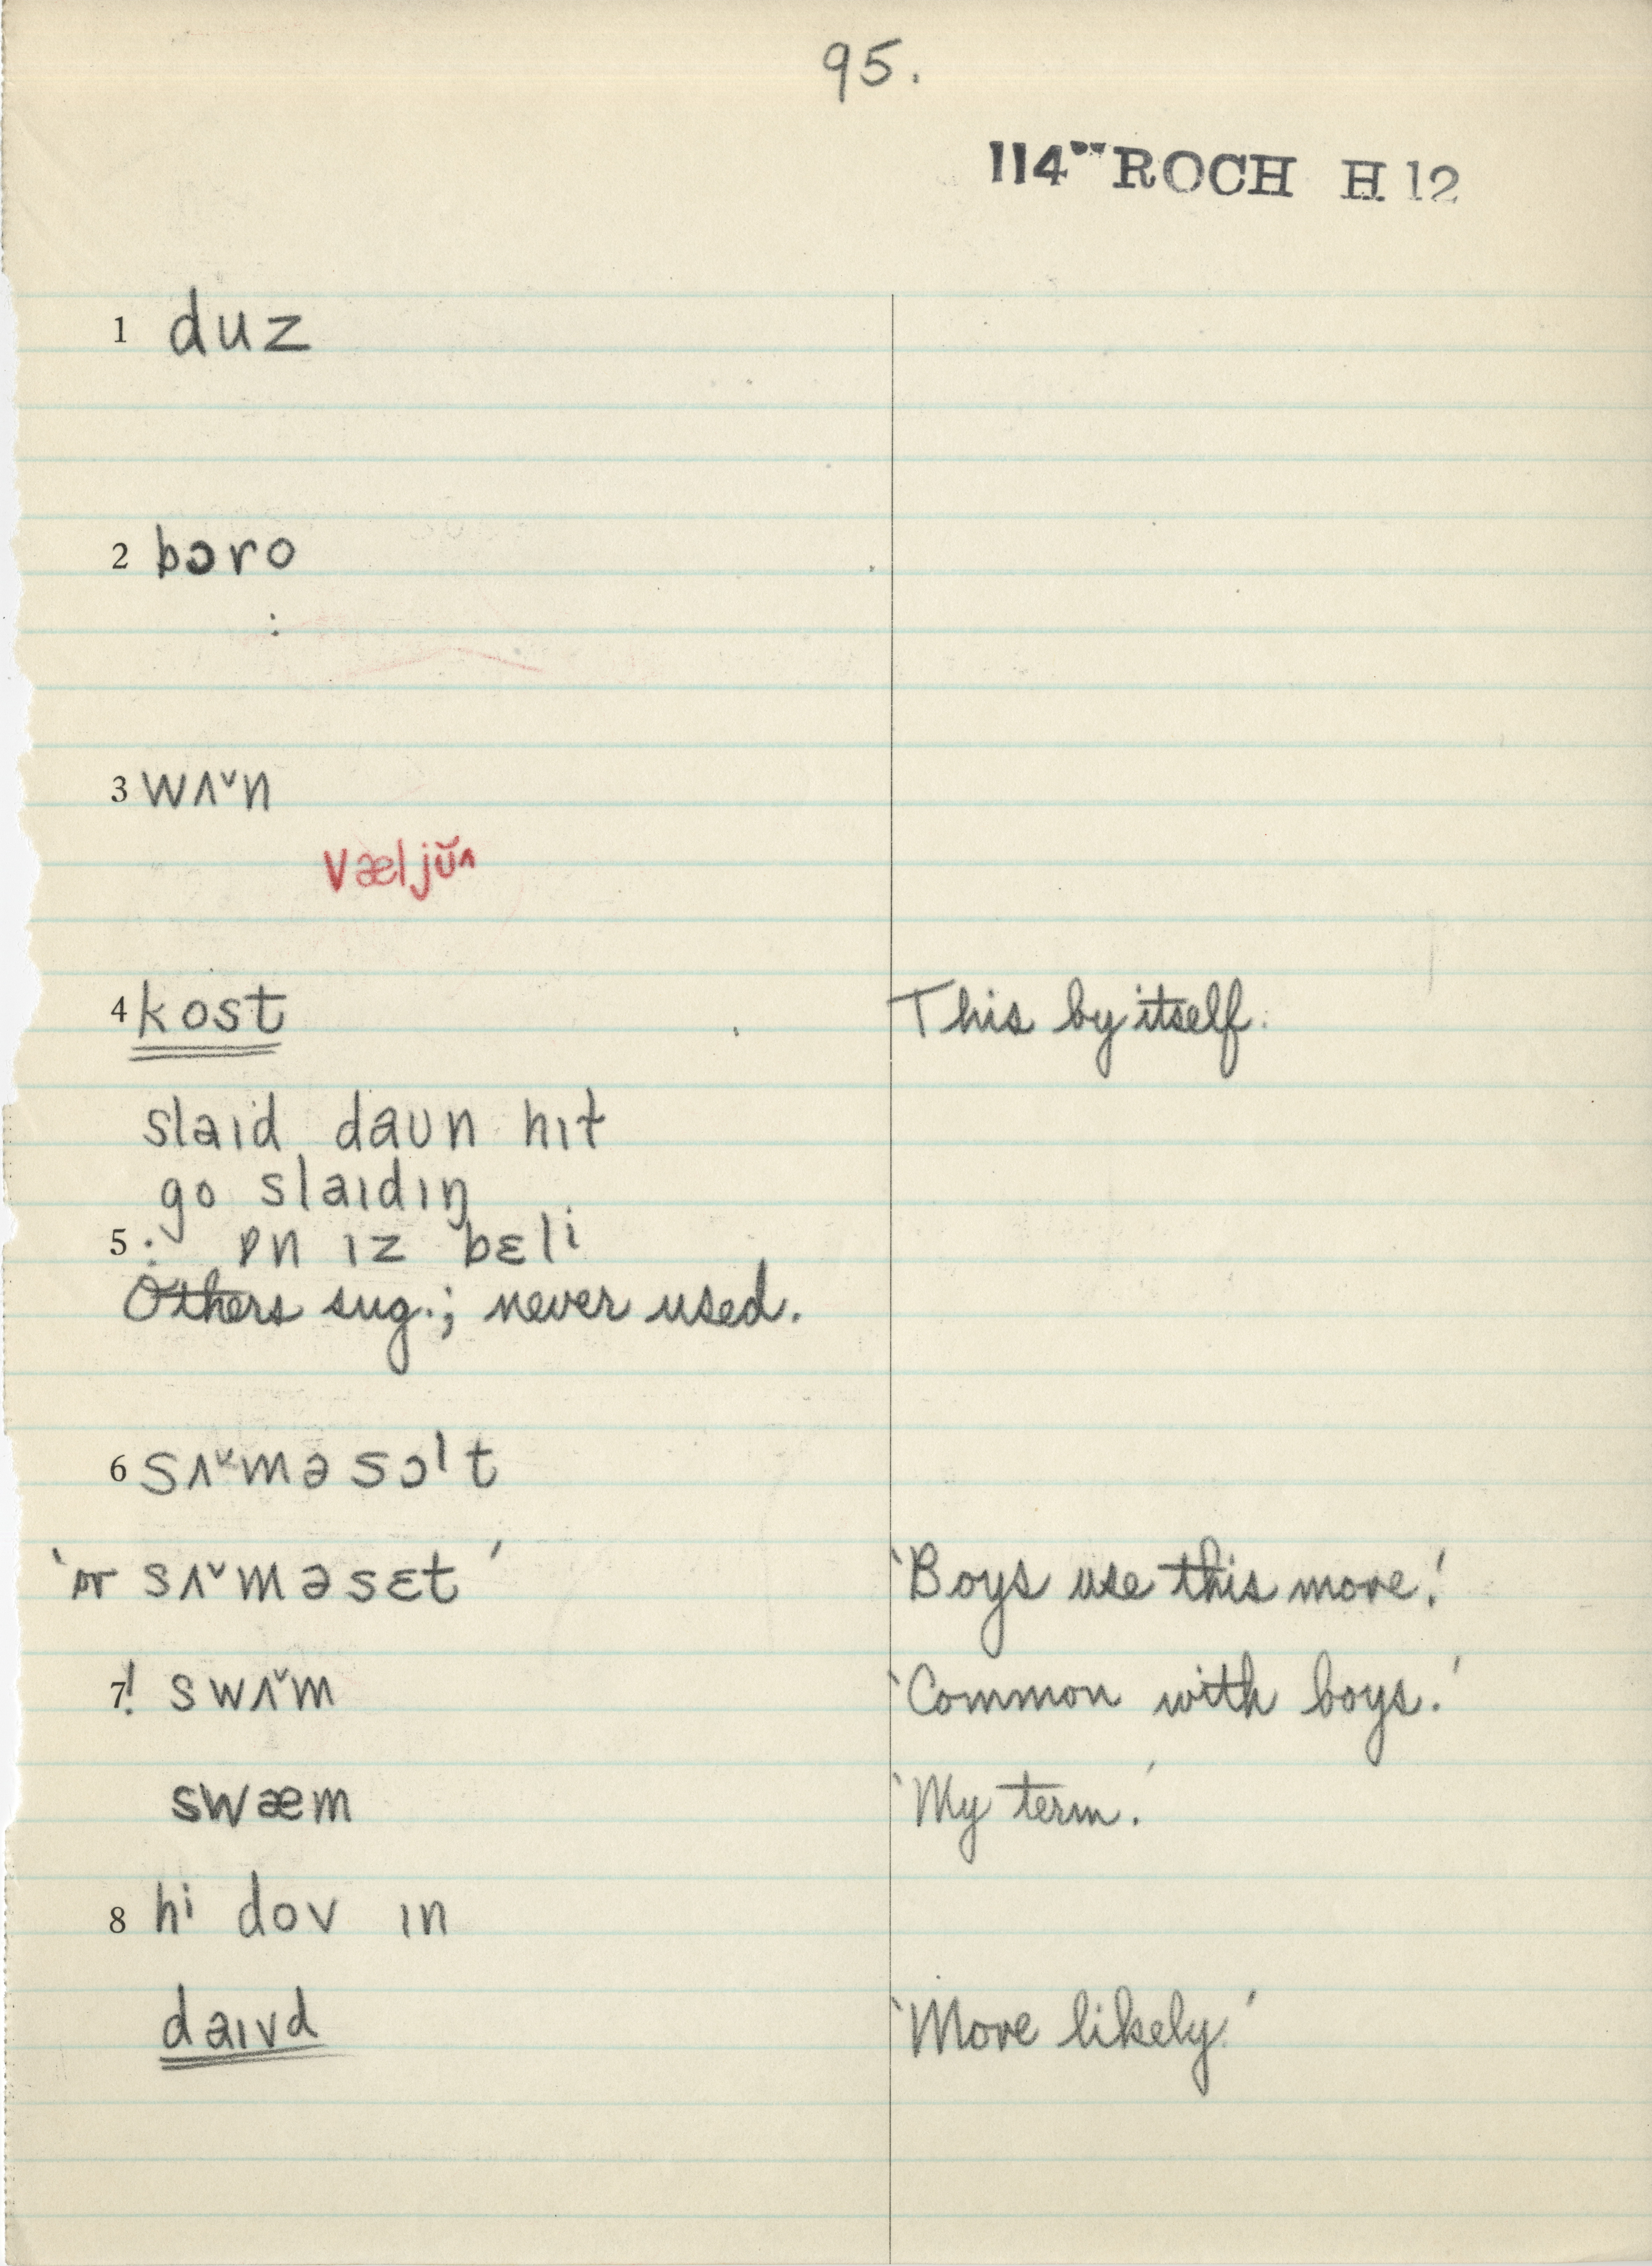 95.
114"" ROCH H 12
1 duz
2 bɔro
:
3 wʌ˅n
væljŭʌ
4 kost This by itself.
slaɪd daʊn hɪt
go slaɪdɪŋ
5 : ɒn ɪz bɛli
Others sug.; never used.
6 sʌ˅məsɔˡt
'or sʌ˅məsɛt' 'Boys use this more.'
7 ! swʌ˅m 'Common with boys.'
swæm 'My term.'
8 hi dov ɪn
daɪvd 'More likely.'